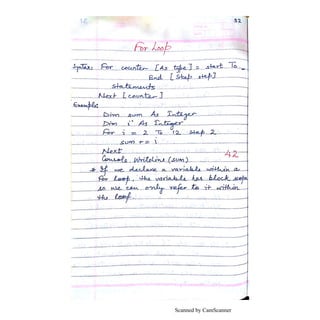 32
For Loop
Syntax: For counter [As type] = start To _
End [Step step]
statements
Next [counter]
Example:
Dim sum As Integer
Dim i As Integer
For i = 2 To 12 step 2
sum += i
Next
Console.Writeline (sum) 42
* If we declare a variable within a
For loop, the variable has block scope
so we can only refer to it within
the loop.
Scanned by CamScanner